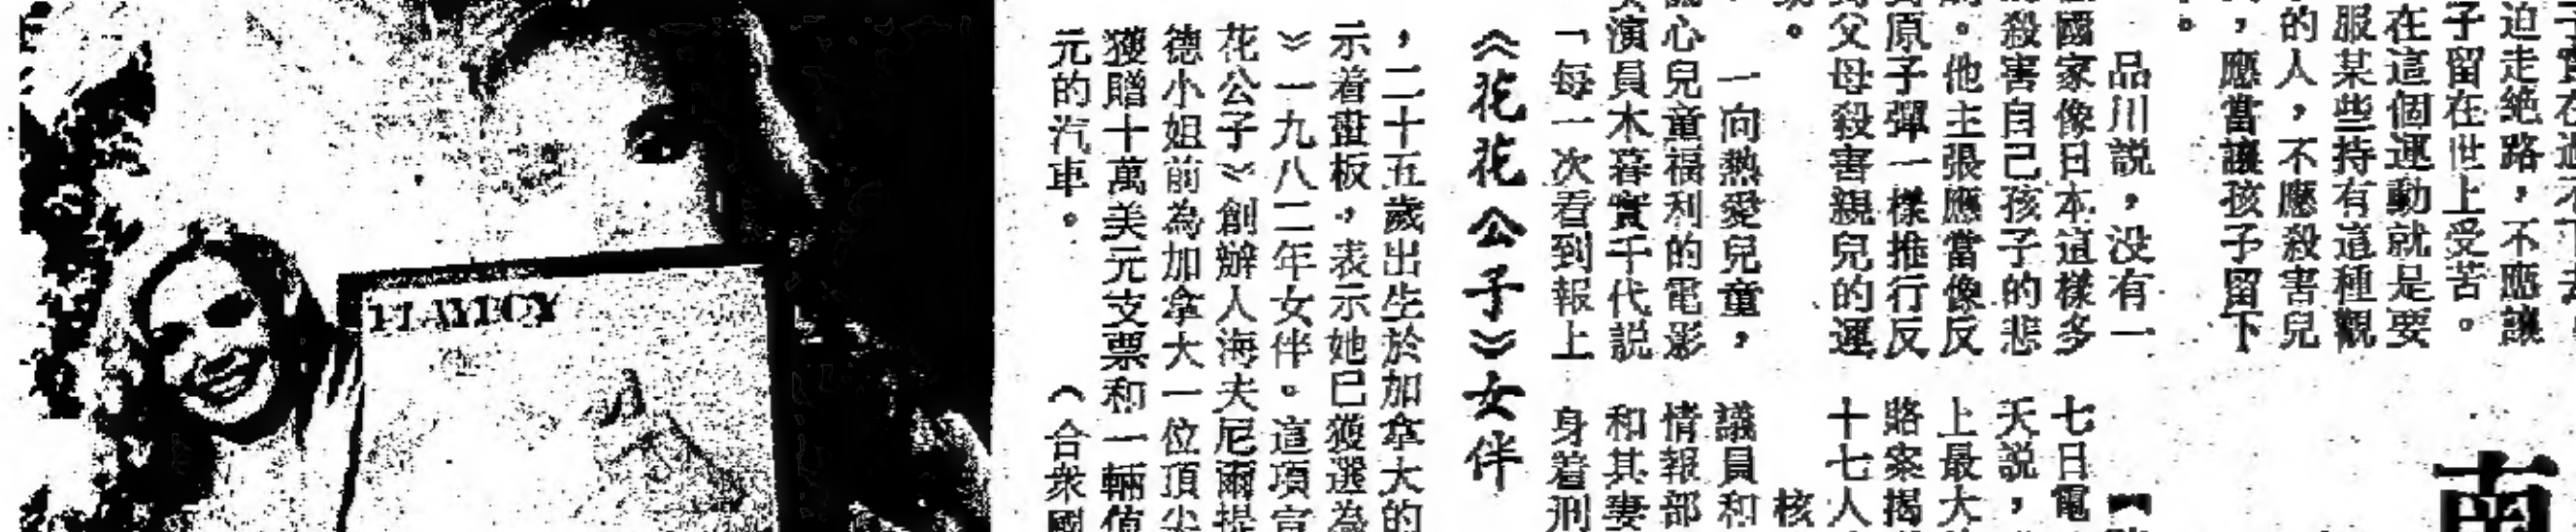 迫走絶路，不應讓
子留在世上受苦。
在這個運動就是要
服某些持有這種觀
的人，不應殺害兒
，應當讓孩子留下
。
品川説，没有一
國家像日本這樣多
殺害自己孩子的悲
。他主張應當像反
原子彈一樣推行反
父母殺害親兒的運
。
一向熱愛兒童，
心兒童福利的電影
演員木暮實千代説
「每一次看到報上
七日電
天説，
上最大
賂案揭
十七人
核
議員和
情報部
和其妻
身着刑
《花花公子》女伴
，二十五歲出生於加拿大的
示着畫板，表示她已獲選為
》一九八二年女伴。這項宣
花公子》創辦人海夫尼爾提
德小姐前為加拿大一位頂尖
獲贈十萬美元支票和一輛值
元的汽車。
（合衆國
PLAYBOY